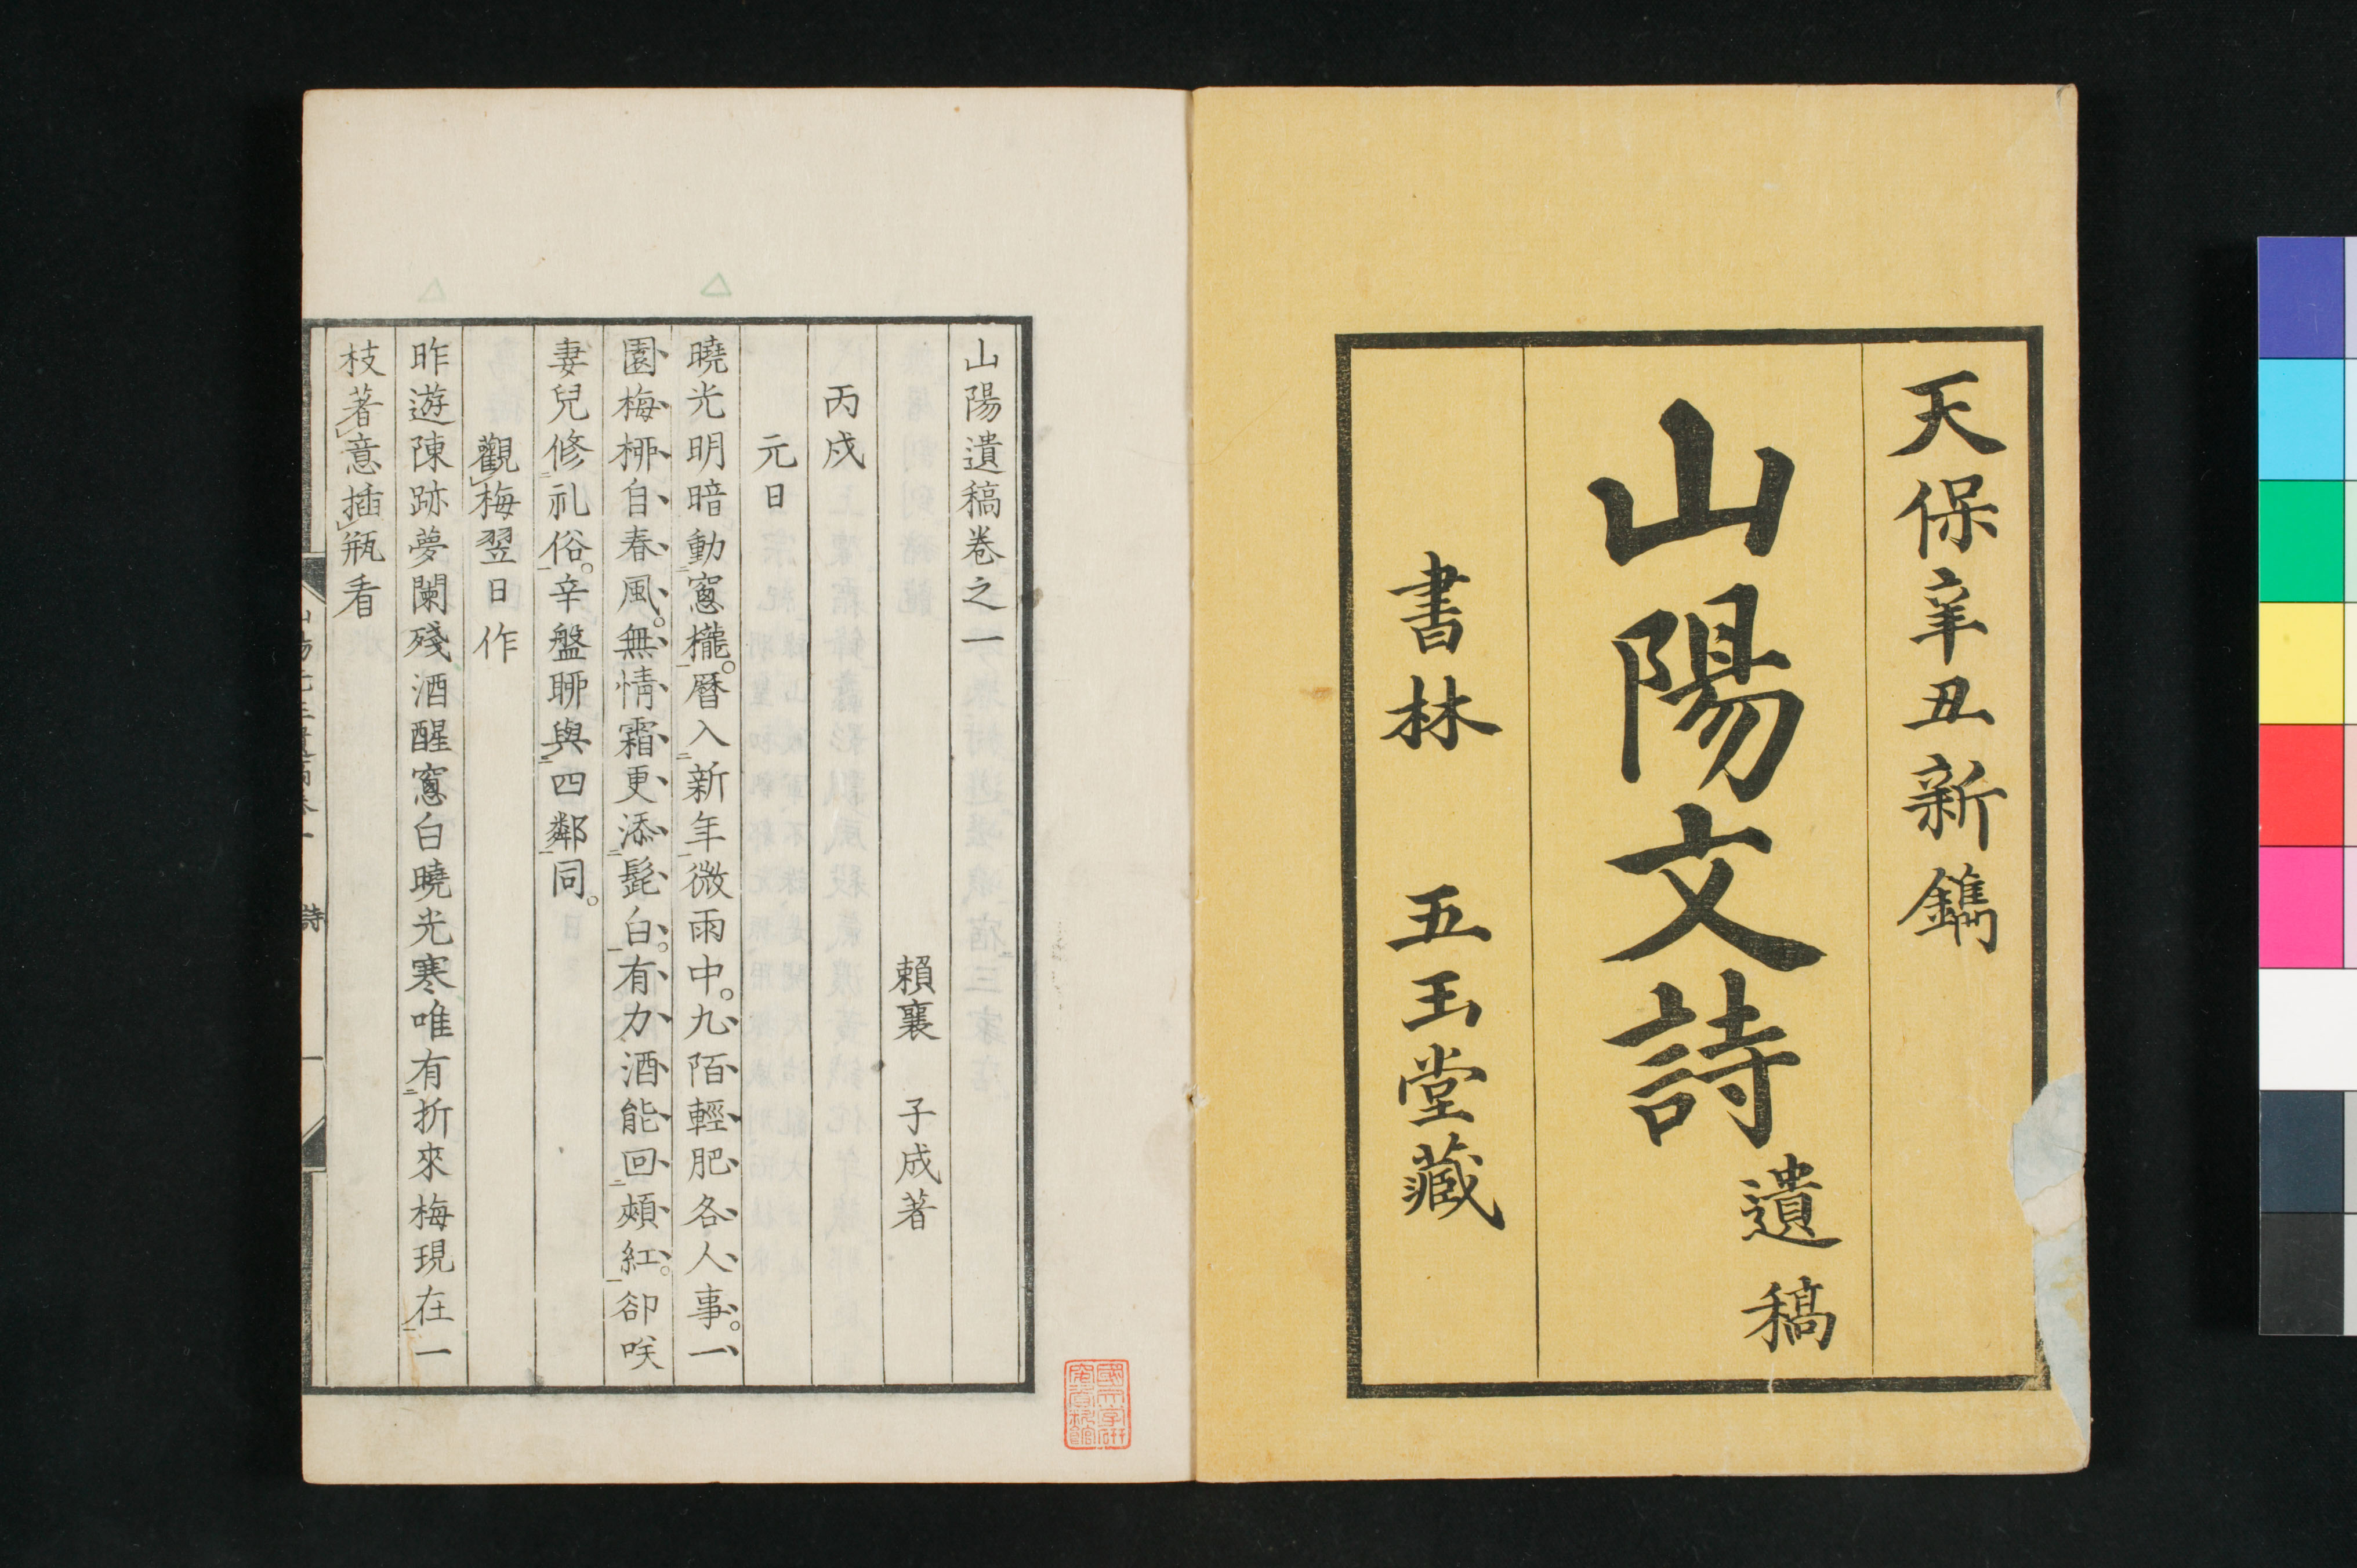 天保辛丑新鐫
山陽文詩遺稿
書林 五玉堂藏
山陽遺稿卷之一
賴襄 子成著
丙戌
元日
曉光明暗動窻櫳。曆入新年微雨中。九陌輕肥各人事。一
園梅柳自春風。無情霜更添髭白。有力酒能回頰紅。卻咲
妻兒修礼俗。辛盤聊與四鄰同。
觀梅翌日作
昨遊陳跡夢闌殘酒醒窻白曉光寒唯有折來梅現在一
枝著意插瓶看
詩
一